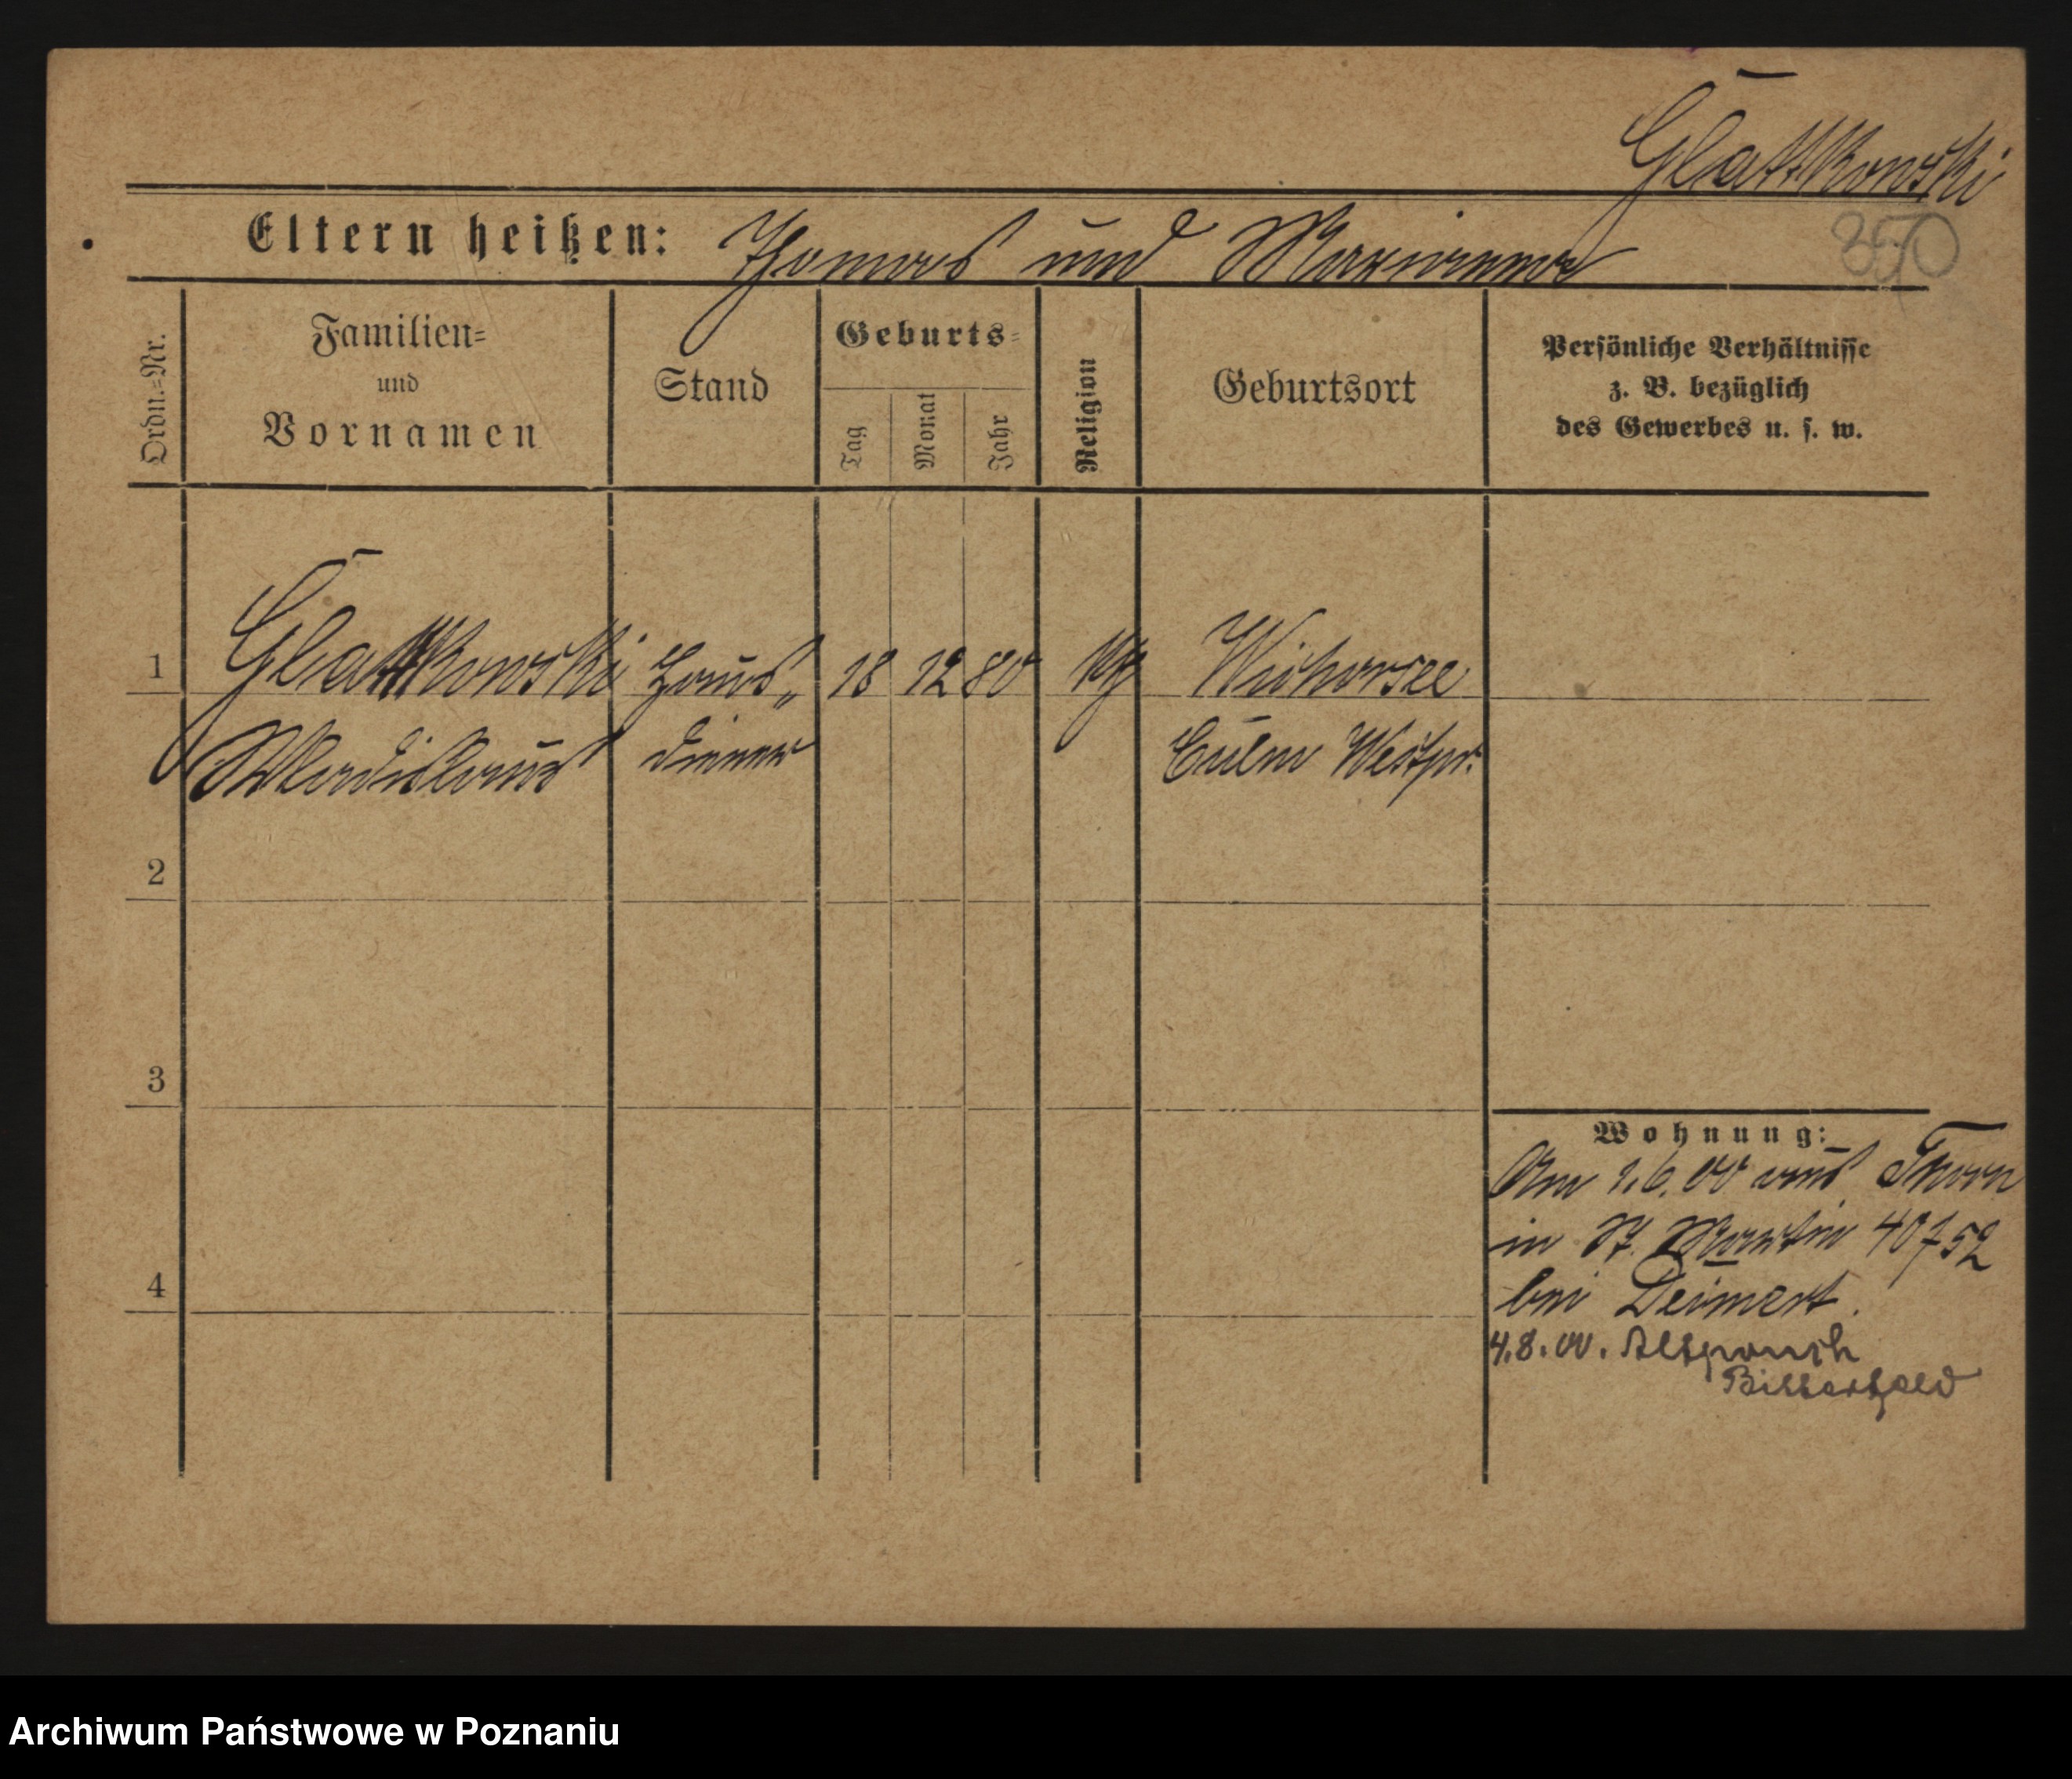 Glattkowski
Eltern heißen: Thomas und Marianna
350
Ordn.=Nr.
Familien=
und
Vornamen
Stand
Geburts=
Tag
Monat
Jahr
Religion
Geburtsort
Persönliche Verhältnisse
z. B. bezüglich
des Gewerbes u. s. w.
1 Glattkowski Haus„ 18 12 80 kth Wichorsee
Wladislaus diener Culm Westpr.
2
3
4
Wohnung:
Am 1.6.00 aus Thorn
in St. Martin 40/52
bei Deimert.
4.8.00. Altpouch
Bitterfeld
Archiwum Państwowe w Poznaniu